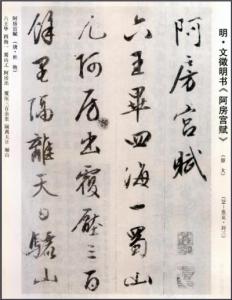 明·文徵明书《阿房宫赋》(放大)
阿房宮賦
六王畢四海一蜀山
兀阿房出覆壓三百
餘里隔離天日驪山
阿房宫赋 (唐·杜牧)
六王毕 四海一 蜀山兀 阿房出 覆压三百余里 隔离天日 骊山